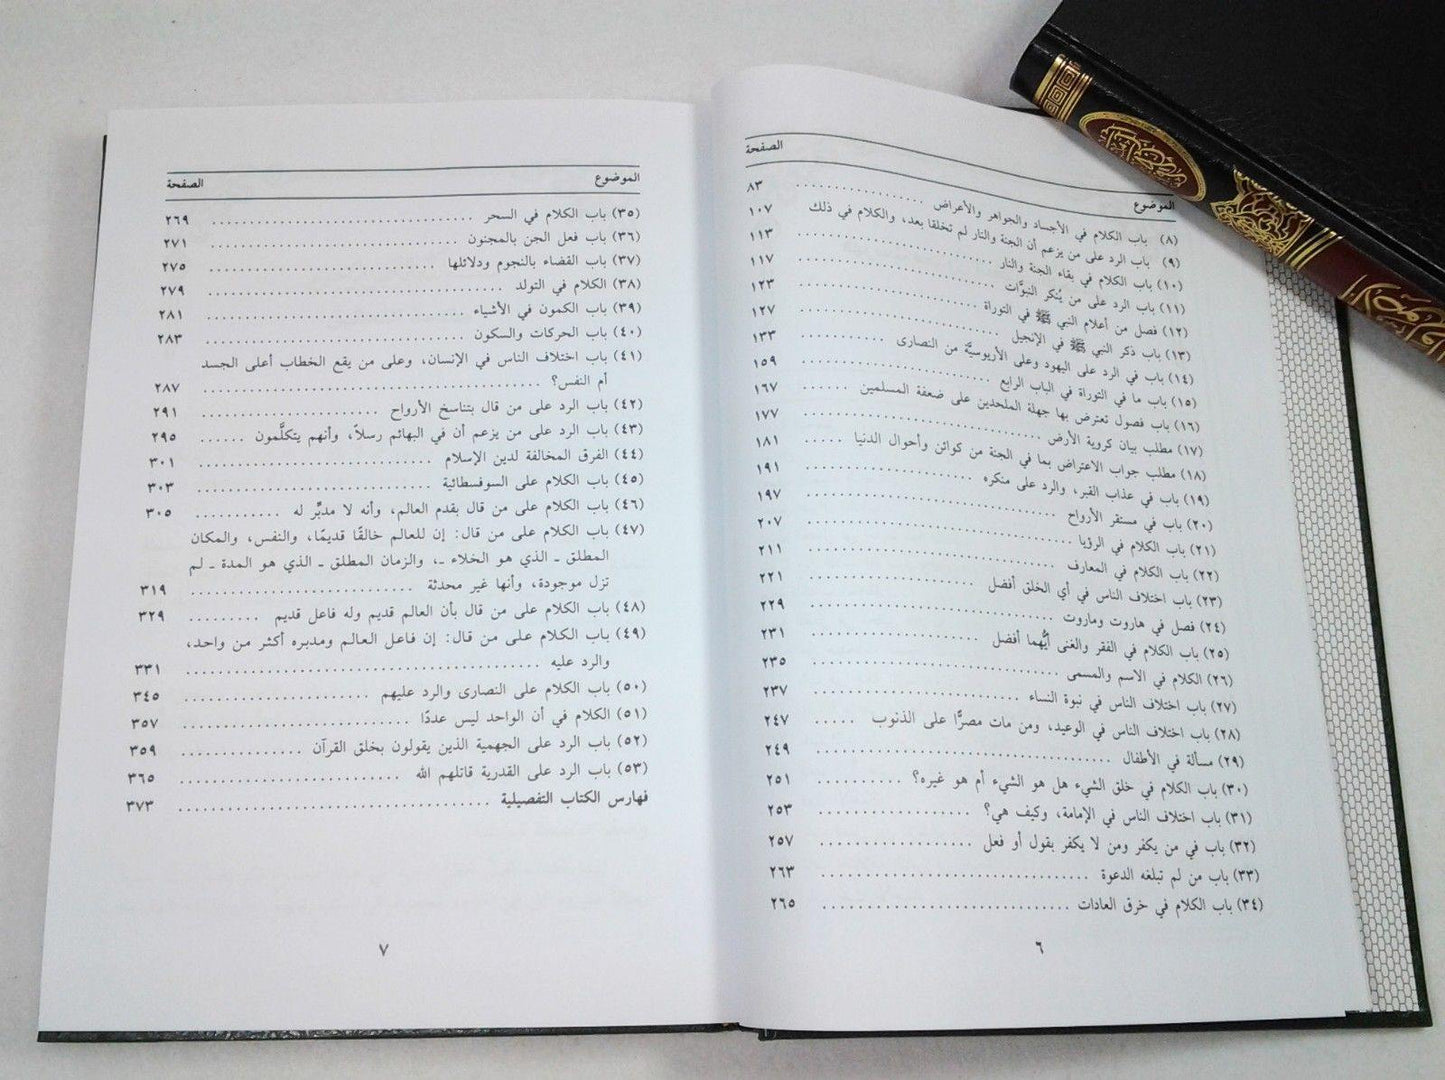 الموضوع الصفحة
(٨) باب الكلام في الأجساد والجواهر والأعراض ٨٣
(٩) باب الرد على من يزعم أن الجنة والنار لم تخلقا بعد، والكلام في ذلك ١٠٧
(١٠) باب الكلام في بقاء الجنة والنار ١١٣
(١١) باب الرد على من يُنكر النبوَّات ١١٧
(١٢) فصل من أعلام النبي ﷺ في التوراة ١٢٣
(١٣) باب ذكر النبي ﷺ في الإنجيل ١٢٧
(١٤) باب في الرد على اليهود وعلى الأريوسيَّة من النصارى ١٣٣
(١٥) باب ما في التوراة في الباب الرابع ١٥٩
(١٦) باب فصول تعترض بها جهلة الملحدين على ضعفة المسلمين ١٦٧
(١٧) مطلب بيان كروية الأرض ١٧٧
(١٨) مطلب جواب الاعتراض بما في الجنة من كوائن وأحوال الدنيا ١٨١
(١٩) باب في عذاب القبر، والرد على منكره ١٩١
(٢٠) باب في مستقر الأرواح ١٩٧
(٢١) باب الكلام في الرؤيا ٢٠٧
(٢٢) باب الكلام في المعارف ٢١١
(٢٣) باب اختلاف الناس في أي الخلق أفضل ٢٢١
(٢٤) فصل في هاروت وماروت ٢٢٩
(٢٥) باب الكلام في الفقر والغنى أيُّهما أفضل ٢٣١
(٢٦) الكلام في الاسم والمسمى ٢٣٥
(٢٧) باب اختلاف الناس في نبوة النساء ٢٣٧
(٢٨) باب اختلاف الناس في الوعيد، ومن مات مصرًّا على الذنوب ٢٤٧
(٢٩) مسألة في الأطفال ٢٤٩
(٣٠) باب الكلام في خلق الشيء هل هو الشيء أم هو غيره؟ ٢٥١
(٣١) باب اختلاف الناس في الإمامة، وكيف هي؟ ٢٥٣
(٣٢) باب في من يكفر ومن لا يكفر بقول أو فعل ٢٥٧
(٣٣) باب من لم تبلغه الدعوة ٢٦٣
(٣٤) باب الكلام في خرق العادات ٢٦٥
٦
الموضوع الصفحة
(٣٥) باب الكلام في السحر ٢٦٩
(٣٦) باب فعل الجن بالمجنون ٢٧١
(٣٧) باب القضاء بالنجوم ودلائلها ٢٧٥
(٣٨) الكلام في التولد ٢٧٩
(٣٩) باب الكمون في الأشياء ٢٨١
(٤٠) باب الحركات والسكون ٢٨٣
(٤١) باب اختلاف الناس في الإنسان، وعلى من يقع الخطاب أعلى الجسد
أم النفس؟ ٢٨٧
(٤٢) باب الرد على من قال بتناسخ الأرواح ٢٩١
(٤٣) باب الرد على من يزعم أن في البهائم رسلاً، وأنهم يتكلَّمون ٢٩٥
(٤٤) الفرق المخالفة لدين الإسلام ٣٠١
(٤٥) باب الكلام على السوفسطائية ٣٠٣
(٤٦) باب الكلام على من قال بقدم العالم، وأنه لا مدبِّر له ٣٠٥
(٤٧) باب الكلام على من قال: إن للعالم خالقًا قديمًا، والنفس، والمكان
المطلق ـ الذي هو الخلاء ـ، والزمان المطلق ـ الذي هو المدة ـ لم
تزل موجودة، وأنها غير محدثة ٣١٩
(٤٨) باب الكلام على من قال بأن العالم قديم وله فاعل قديم ٣٢٩
(٤٩) باب الكلام على من قال: إن فاعل العالم ومدبره أكثر من واحد،
والرد عليه ٣٣١
(٥٠) باب الكلام على النصارى والرد عليهم ٣٤٥
(٥١) الكلام في أن الواحد ليس عددًا ٣٥٧
(٥٢) باب الرد على الجهمية الذين يقولون بخلق القرآن ٣٥٩
(٥٣) باب الرد على القدرية قاتلهم الله ٣٦٥
فهارس الكتاب التفصيلية ٣٧٣
٧